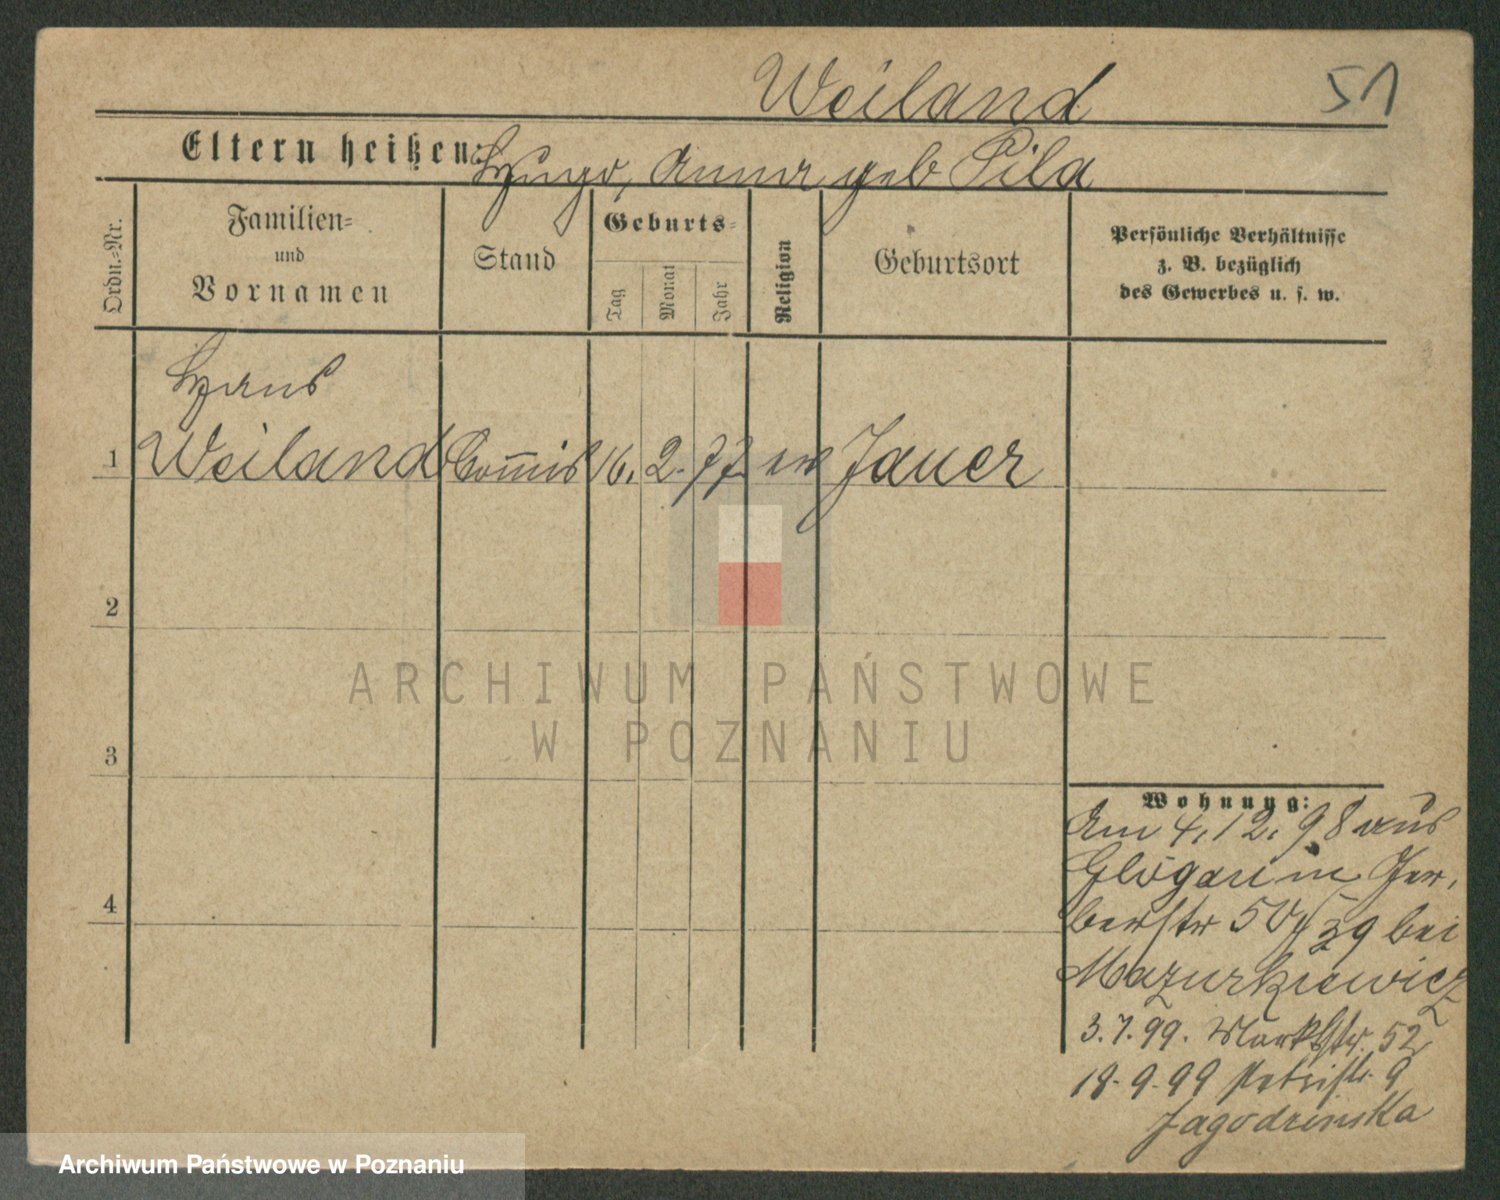 Weiland
51
Eltern heißen: Hugo, Anna geb Pila
Ordn.-Nr.
Familien-
und
Vornamen
Stand
Geburts-
Tag
Monat
Jahr
Religion
Geburtsort
Persönliche Verhältnisse
z. B. bezüglich
des Gewerbes u. s. w.
Hans
1 Weiland Commis 16. 2. 77 ev Jauer
2
3
4
Wohnung:
Am 4.12.98 aus
Glogau in Ger,
berstr 50/39 bei
Mazurkiewicz
3.7.99. Marktstr. 52
18.9.99 Petristr. 9
Jagodzinska
ARCHIWUM PAŃSTWOWE
W POZNANIU
Archiwum Państwowe w Poznaniu